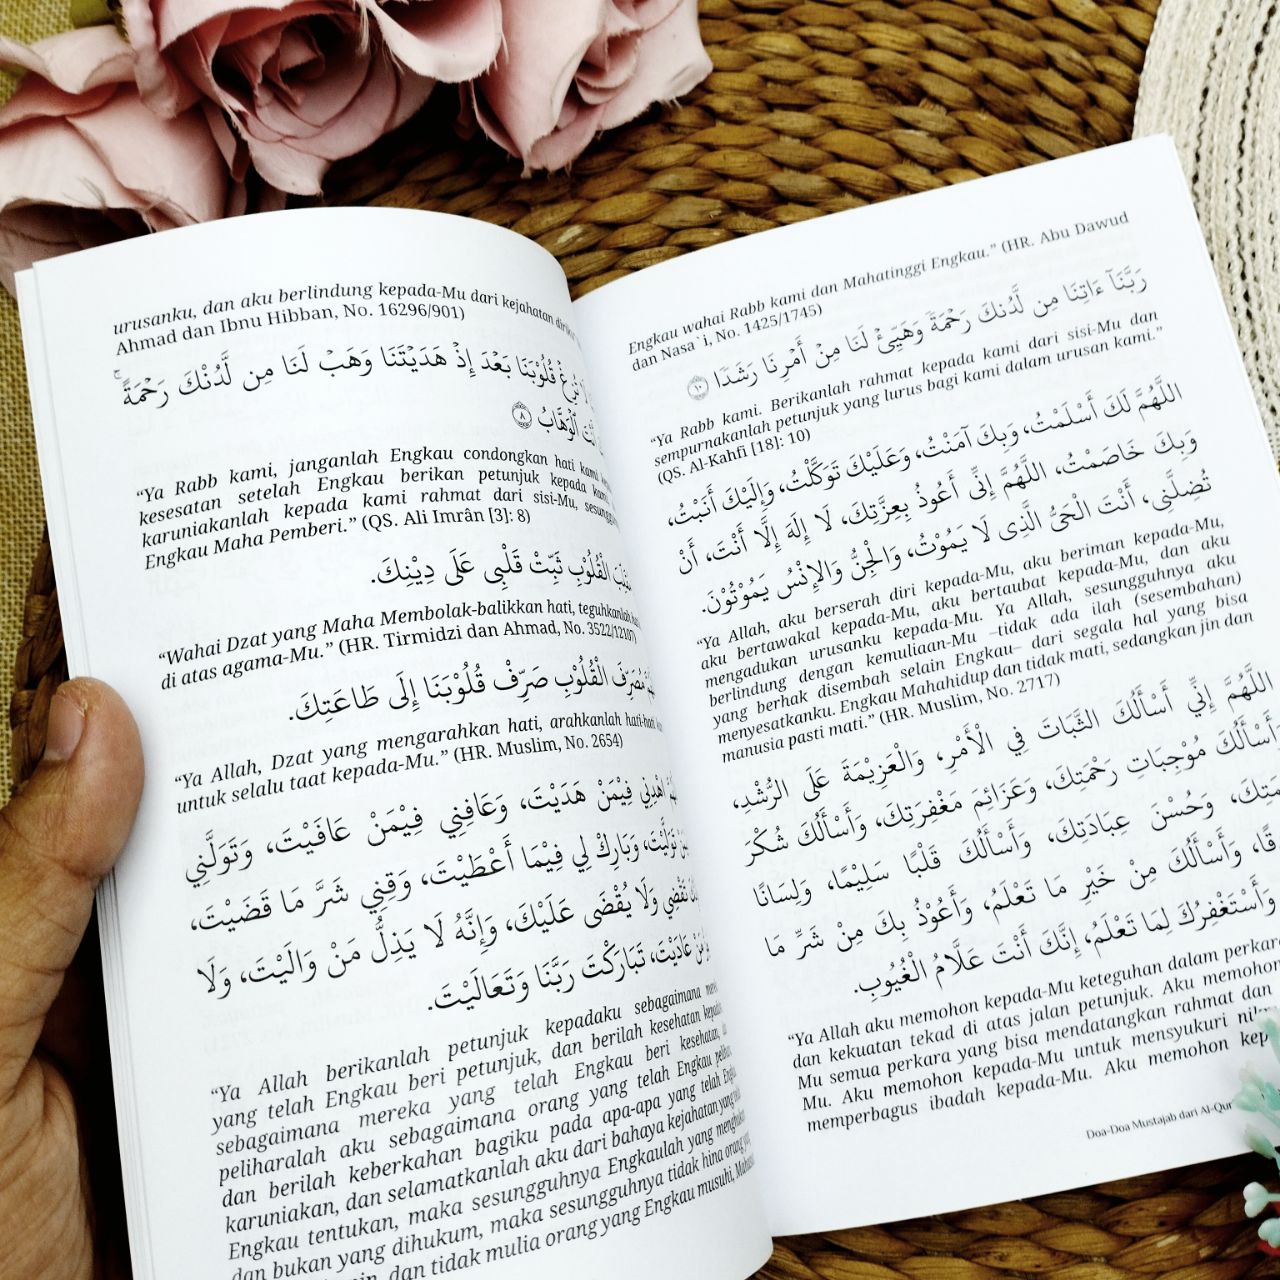 urusanku, dan aku berlindung kepada-Mu dari kejahatan
Ahmad dan Ibnu Hibban, No. 16296/901)
قُلُوْبَنَا بَعْدَ إِذْ هَدَيْتَنَا وَهَبْ لَنَا مِن لَّدُنْكَ رَحْمَةً ۚ
الْوَهَّابُ ٨
"Ya Rabb kami, janganlah Engkau condongkan hati kami
kesesatan setelah Engkau berikan petunjuk kepada kami,
karuniakanlah kepada kami rahmat dari sisi-Mu,
Engkau Maha Pemberi." (QS. Ali Imrân [3]: 8)
الْقُلُوْبِ ثَبِّتْ قَلْبِى عَلَى دِيْنِكَ.
"Wahai Dzat yang Maha Membolak-balikkan hati, teguhkanlah
di atas agama-Mu." (HR. Tirmidzi dan Ahmad, No. 3522/12107)
مُصَرِّفَ الْقُلُوْبِ صَرِّفْ قُلُوْبَنَا إِلَى طَاعَتِكَ.
"Ya Allah, Dzat yang mengarahkan hati, arahkanlah hati-hati
untuk selalu taat kepada-Mu." (HR. Muslim, No. 2654)
اهْدِنِي فِيْمَنْ هَدَيْتَ، وَعَافِنِي فِيْمَنْ عَافَيْتَ، وَتَوَلَّنِي
تَوَلَّيْتَ، وَبَارِكْ لِي فِيْمَا أَعْطَيْتَ، وَقِنِي شَرَّ مَا قَضَيْتَ،
تَقْضِي وَلَا يُقْضَى عَلَيْكَ، وَإِنَّهُ لَا يَذِلُّ مَنْ وَالَيْتَ، وَلَا
مَنْ عَادَيْتَ، تَبَارَكْتَ رَبَّنَا وَتَعَالَيْتَ.
"Ya Allah berikanlah petunjuk kepadaku sebagaimana
yang telah Engkau beri petunjuk, dan berilah kesehatan
sebagaimana mereka yang telah Engkau beri kesehatan,
peliharalah aku sebagaimana orang yang telah Engkau
dan berilah keberkahan bagiku pada apa-apa yang telah
karuniakan, dan selamatkanlah aku dari bahaya kejahatan yang
Engkau tentukan, maka sesungguhnya Engkaulah yang
dan bukan yang dihukum, maka sesungguhnya tidak hina orang
dan tidak mulia orang yang Engkau musuhi,
Engkau wahai Rabb kami dan Mahatinggi Engkau." (HR. Abu Dawud
dan Nasa`i, No. 1425/1745)
رَبَّنَآ ءَاتِنَا مِن لَّدُنكَ رَحْمَةً وَهَيِّئْ لَنَا مِنْ أَمْرِنَا رَشَدًا ١٠
"Ya Rabb kami. Berikanlah rahmat kepada kami dari sisi-Mu dan
sempurnakanlah petunjuk yang lurus bagi kami dalam urusan kami."
(QS. Al-Kahfi [18]: 10)
اللَّهُمَّ لَكَ أَسْلَمْتُ، وَبِكَ آمَنْتُ، وَعَلَيْكَ تَوَكَّلْتُ، وَإِلَيْكَ أَنَبْتُ،
وَبِكَ خَاصَمْتُ، اللَّهُمَّ إِنِّى أَعُوذُ بِعِزَّتِكَ، لَا إِلَهَ إِلَّا أَنْتَ، أَنْ
تُضِلَّنِى، أَنْتَ الْحَىُّ الَّذِى لَا يَمُوْتُ، وَالْجِنُّ وَالإِنْسُ يَمُوْتُوْنَ.
"Ya Allah, aku berserah diri kepada-Mu, aku beriman kepada-Mu,
aku bertawakal kepada-Mu, aku bertaubat kepada-Mu, dan aku
mengadukan urusanku kepada-Mu. Ya Allah, sesungguhnya aku
berlindung dengan kemuliaan-Mu –tidak ada ilah (sesembahan)
yang berhak disembah selain Engkau– dari segala hal yang bisa
menyesatkanku. Engkau Mahahidup dan tidak mati, sedangkan jin dan
manusia pasti mati." (HR. Muslim, No. 2717)
اللَّهُمَّ إِنِّي أَسْأَلُكَ الثَّبَاتَ فِي الْأَمْرِ، وَالْعَزِيْمَةَ عَلَى الرُّشْدِ،
أَسْأَلُكَ مُوْجِبَاتِ رَحْمَتِكَ، وَعَزَائِمَ مَغْفِرَتِكَ، وَأَسْأَلُكَ شُكْرَ
وَحُسْنَ عِبَادَتِكَ، وَأَسْأَلُكَ قَلْبًا سَلِيْمًا، وَلِسَانًا
وَأَسْأَلُكَ مِنْ خَيْرِ مَا تَعْلَمُ، وَأَعُوْذُ بِكَ مِنْ شَرِّ مَا
وَأَسْتَغْفِرُكَ لِمَا تَعْلَمُ، إِنَّكَ أَنْتَ عَلَّامُ الْغُيُوْبِ.
"Ya Allah aku memohon kepada-Mu keteguhan dalam perkara
dan kekuatan tekad di atas jalan petunjuk. Aku memohon
Mu semua perkara yang bisa mendatangkan rahmat dan
Mu. Aku memohon kepada-Mu untuk mensyukuri
memperbagus ibadah kepada-Mu. Aku memohon
Doa-Doa Mustajab dari Al-Qur